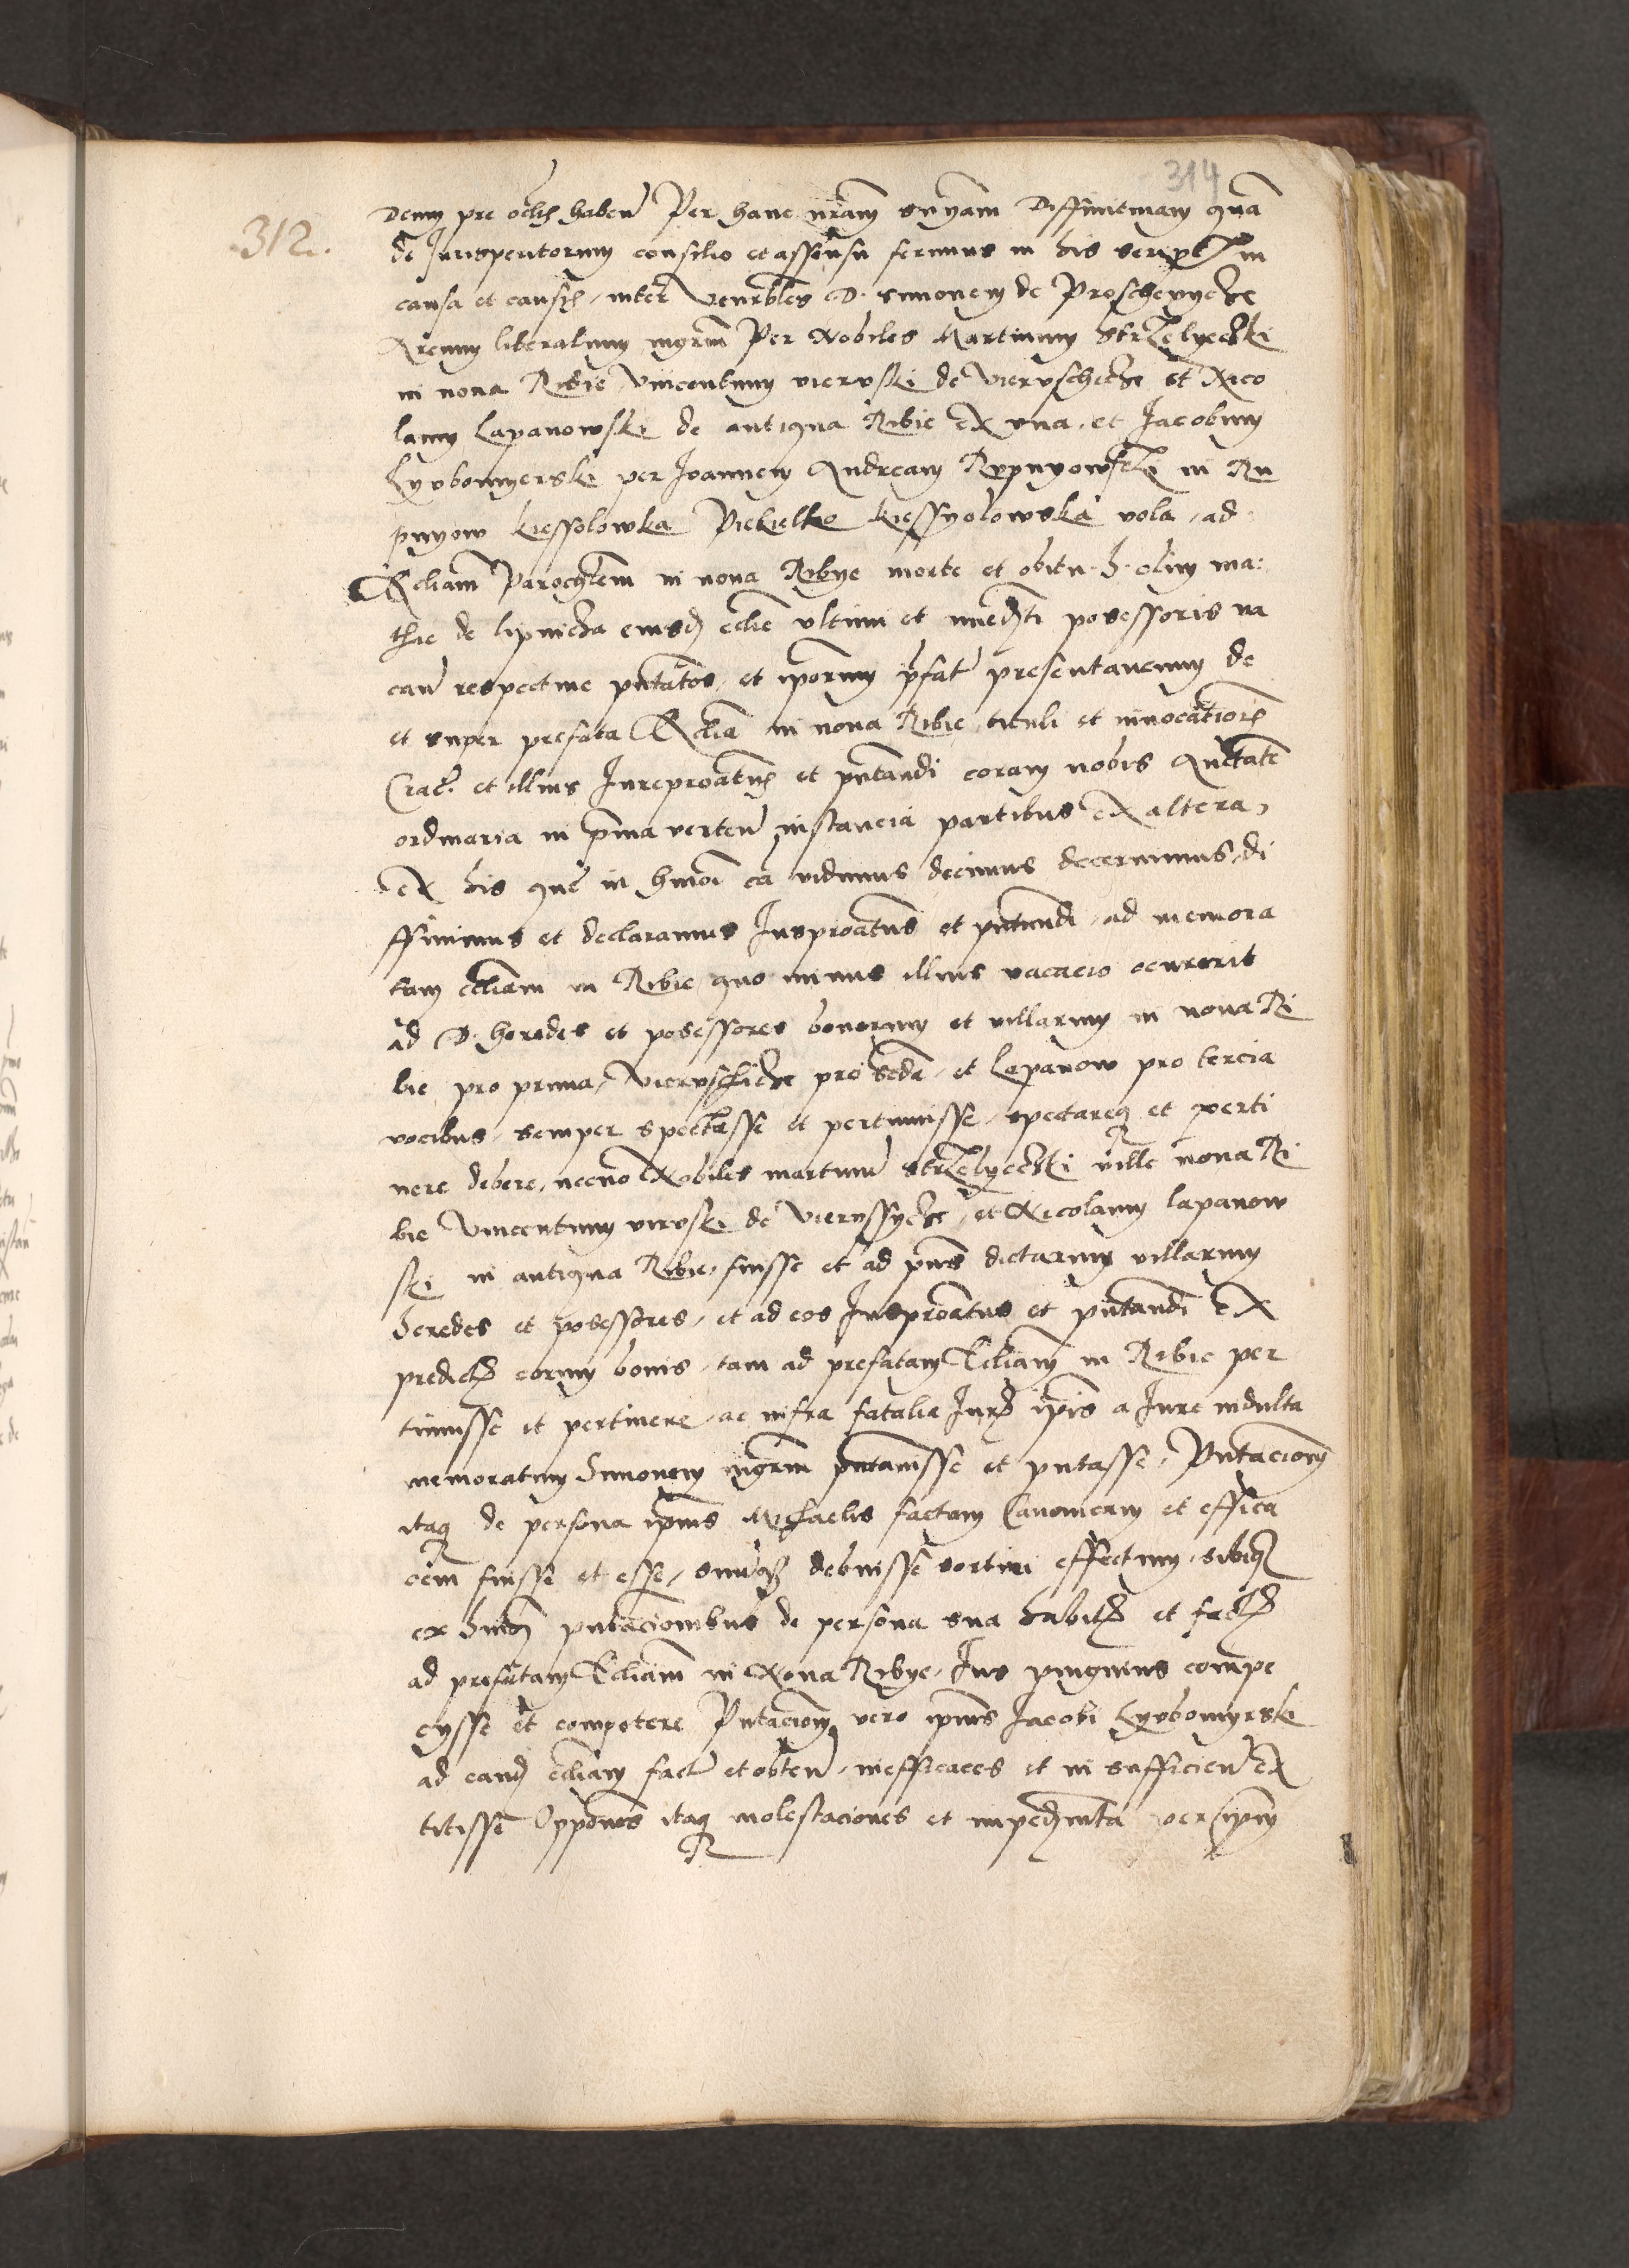 314
312.
Deum pre oclis haben Per hanc nram snyam Diffinitivam qua
de Jurisperitorum consilio et assensu ferimus in his script in
causa et causis, inter Venrbles D. Simonem de Proschovycze
Arcium liberalium mgrm Per Nobiles Martinum Strzelyeczki
in nova Ribie Vincentium viervski de Viervschicze et Nico
laum Lapanowski de antiqua Ribie ex una, et Jacobum
Lyvbomyerski per Joannem Andream Rvpnyowski in Ru
pnyow kiessolowka Piekielko kiessyolowska vola, ad
Eccliam Parochlem in nova Ribye morte et obitu h. olim ma:
thie de lipnicza eiusd eclie ultimi et immedti possessoris va
can respective pntatos, et iporum pfat presentaveium de
et super prefata Ecclia in nova Ribie, tituli et invocationis
Crac. et illius Jureproatus et pntandi coram nobis Auctate
ordinaria in pma verten instancia partibus ex altera,
ex his que in hmoi ca vidimus decimus decernimus, di
ffinimus et declaramus Jusproatus et pntandi, ad memora
tam eccliam in Ribie, quo minus illius vacacio ocurrerit
ad D. heredes et possessores bonorum et villarum in nova Ri
bie pro prima, Viervschicze pro scda, et Lapanow pro tercia
vocibus, semper spectasse et pertinuisse, spectareq et perti
nere debere, necno Nobiles martinum Strzelyeczki ville nova Ri
bie Vincentium virvski de Viervssycze, et Nicolaum lapanow
ski in antiqua Ribie, fuisse et ad pns dictarum villarum
heredes et possessores, et ad eos Jusproatus et pntandi ex
predictis eorum bonis, tam ad prefatam Eccliam in Ribie per
tinuisse et pertinere, ac infra fatalia Juris ipis a Jure indulta
memoratum Simonem mgrm pntavisse et pntasse, Pntacionem
itaq de persona ipius Michaelis factam Canonicam et effica
cem fuisse et esse, suuq debuisse sortiri effectum, sibiq
ex hmoi pntacionibus de persona sua habitis et factis
ad prefatam Eccliam in Nova Ribye, Jus pinguius compe
cysse et competere Pntacionem vero ipius Jacobi Lyvbomyrski
ad eand eccliam fact et obten, inefficaces et in sufficien ex
titisse Opposones itaq molestaciones et impedimta per ipm